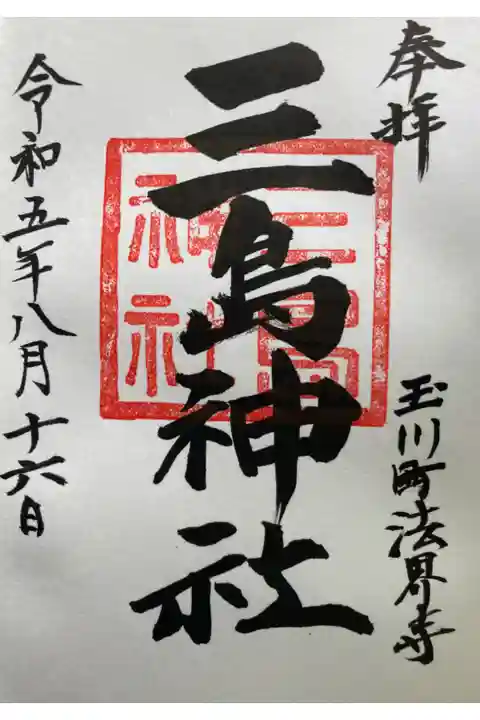 奉拝
玉川町法界寺
三島神社
三島神社
令和五年八月十六日